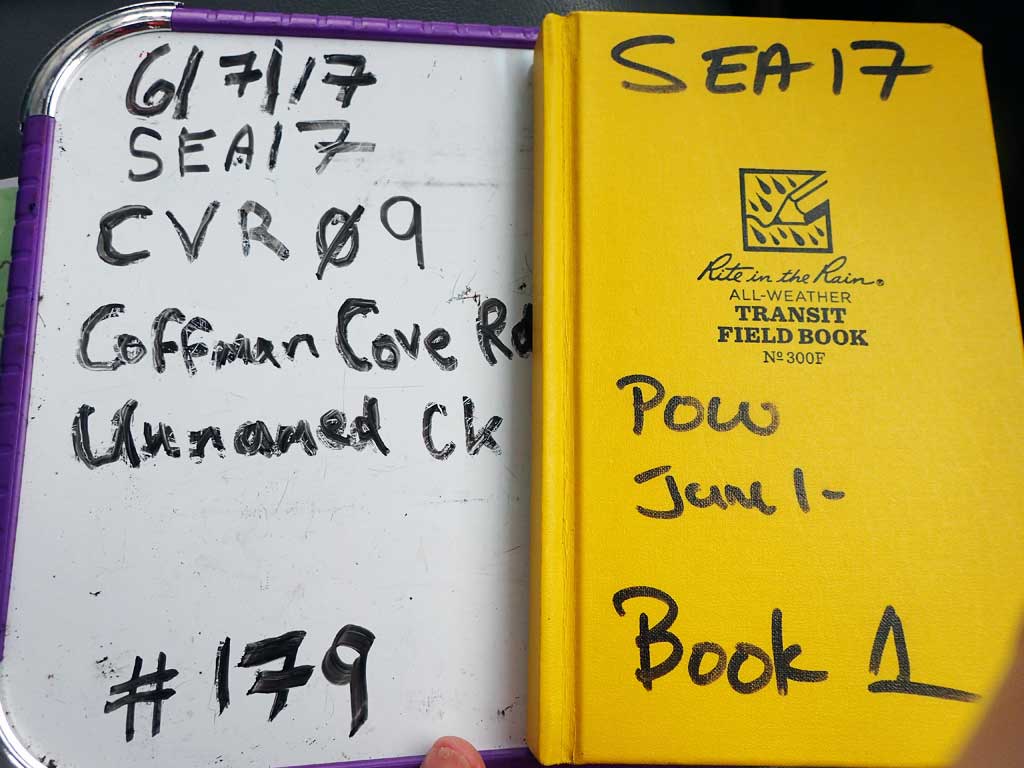 6/7/17
SEA17
CVR Ø9
Coffman Cove Rd
Unnamed Ck
#179
SEA17
Rite in the Rain®
ALL-WEATHER
TRANSIT
FIELD BOOK
Nº 300F
POW
June 1-
Book 1